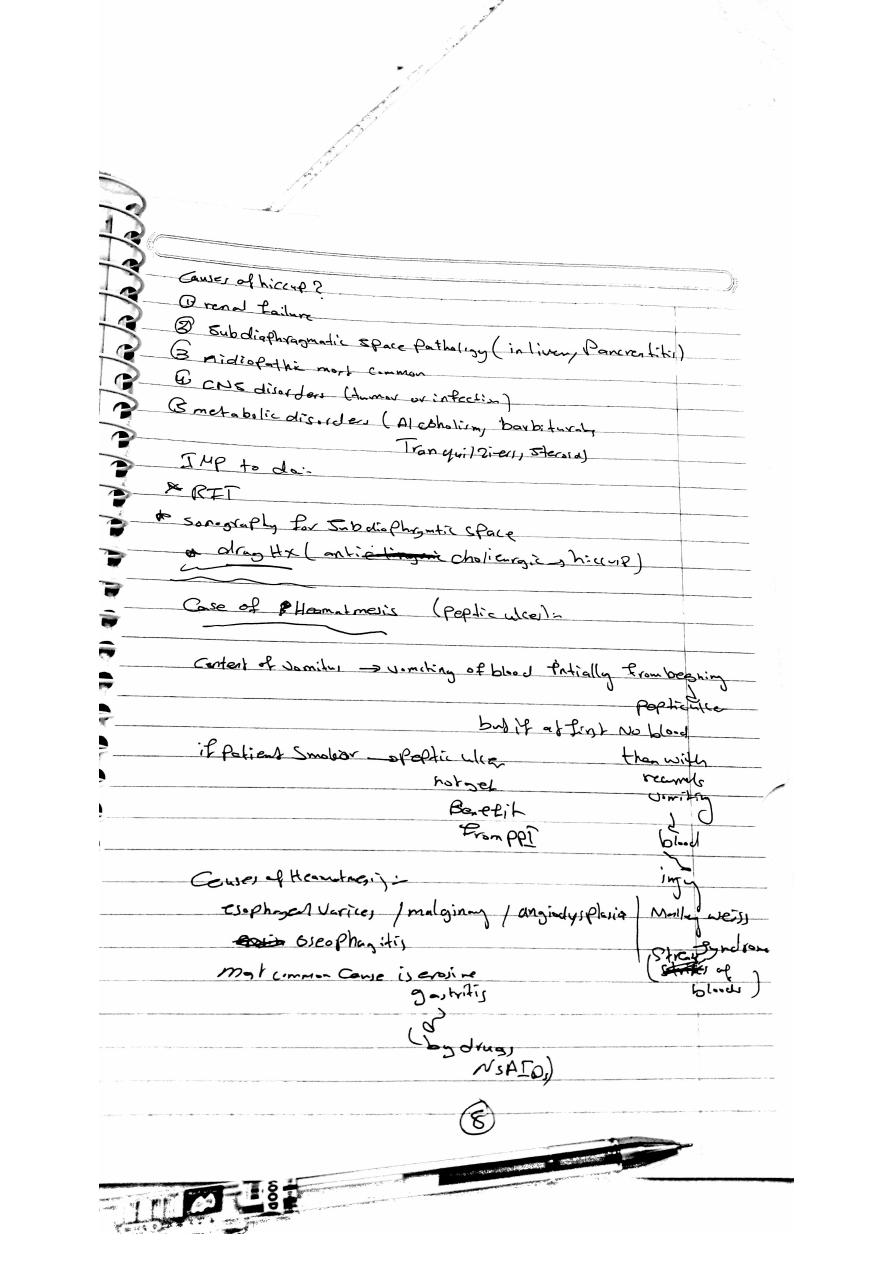 Causes of hiccup?
① renal failure
② Subdiaphragmatic space Pathology ( in liver, Pancreatitis)
③ idiopathic most common
④ CNS disorders (tumor or infection)
⑤ metabolic disorders ( Alcoholism, barbiturate,
Tranquilizers, steroids)
IMP to do:-
* RFT
* Sonography for Subdiaphrgmtic space
* drug Hx ( anti cholienrgic → hiccup)
Case of Heamatmesis (peptic ulcer):-
Content of vomitus → vomiting of blood Intially from begining
peptic ulcer
but if at first No blood
then with
if patient Smoker → peptic ulcer
not get
recurrents
vomiting
Benefit
from PPI
blood
injury
Causes of Heamatmesis:-
esophageal varices / malginancy / angiodysplasia
Mallory weiss
oseophagitis
syndrome
(Streaks of
bloods)
most common cause is erosive
gastritis
(by drugs
NSAIDs)
8